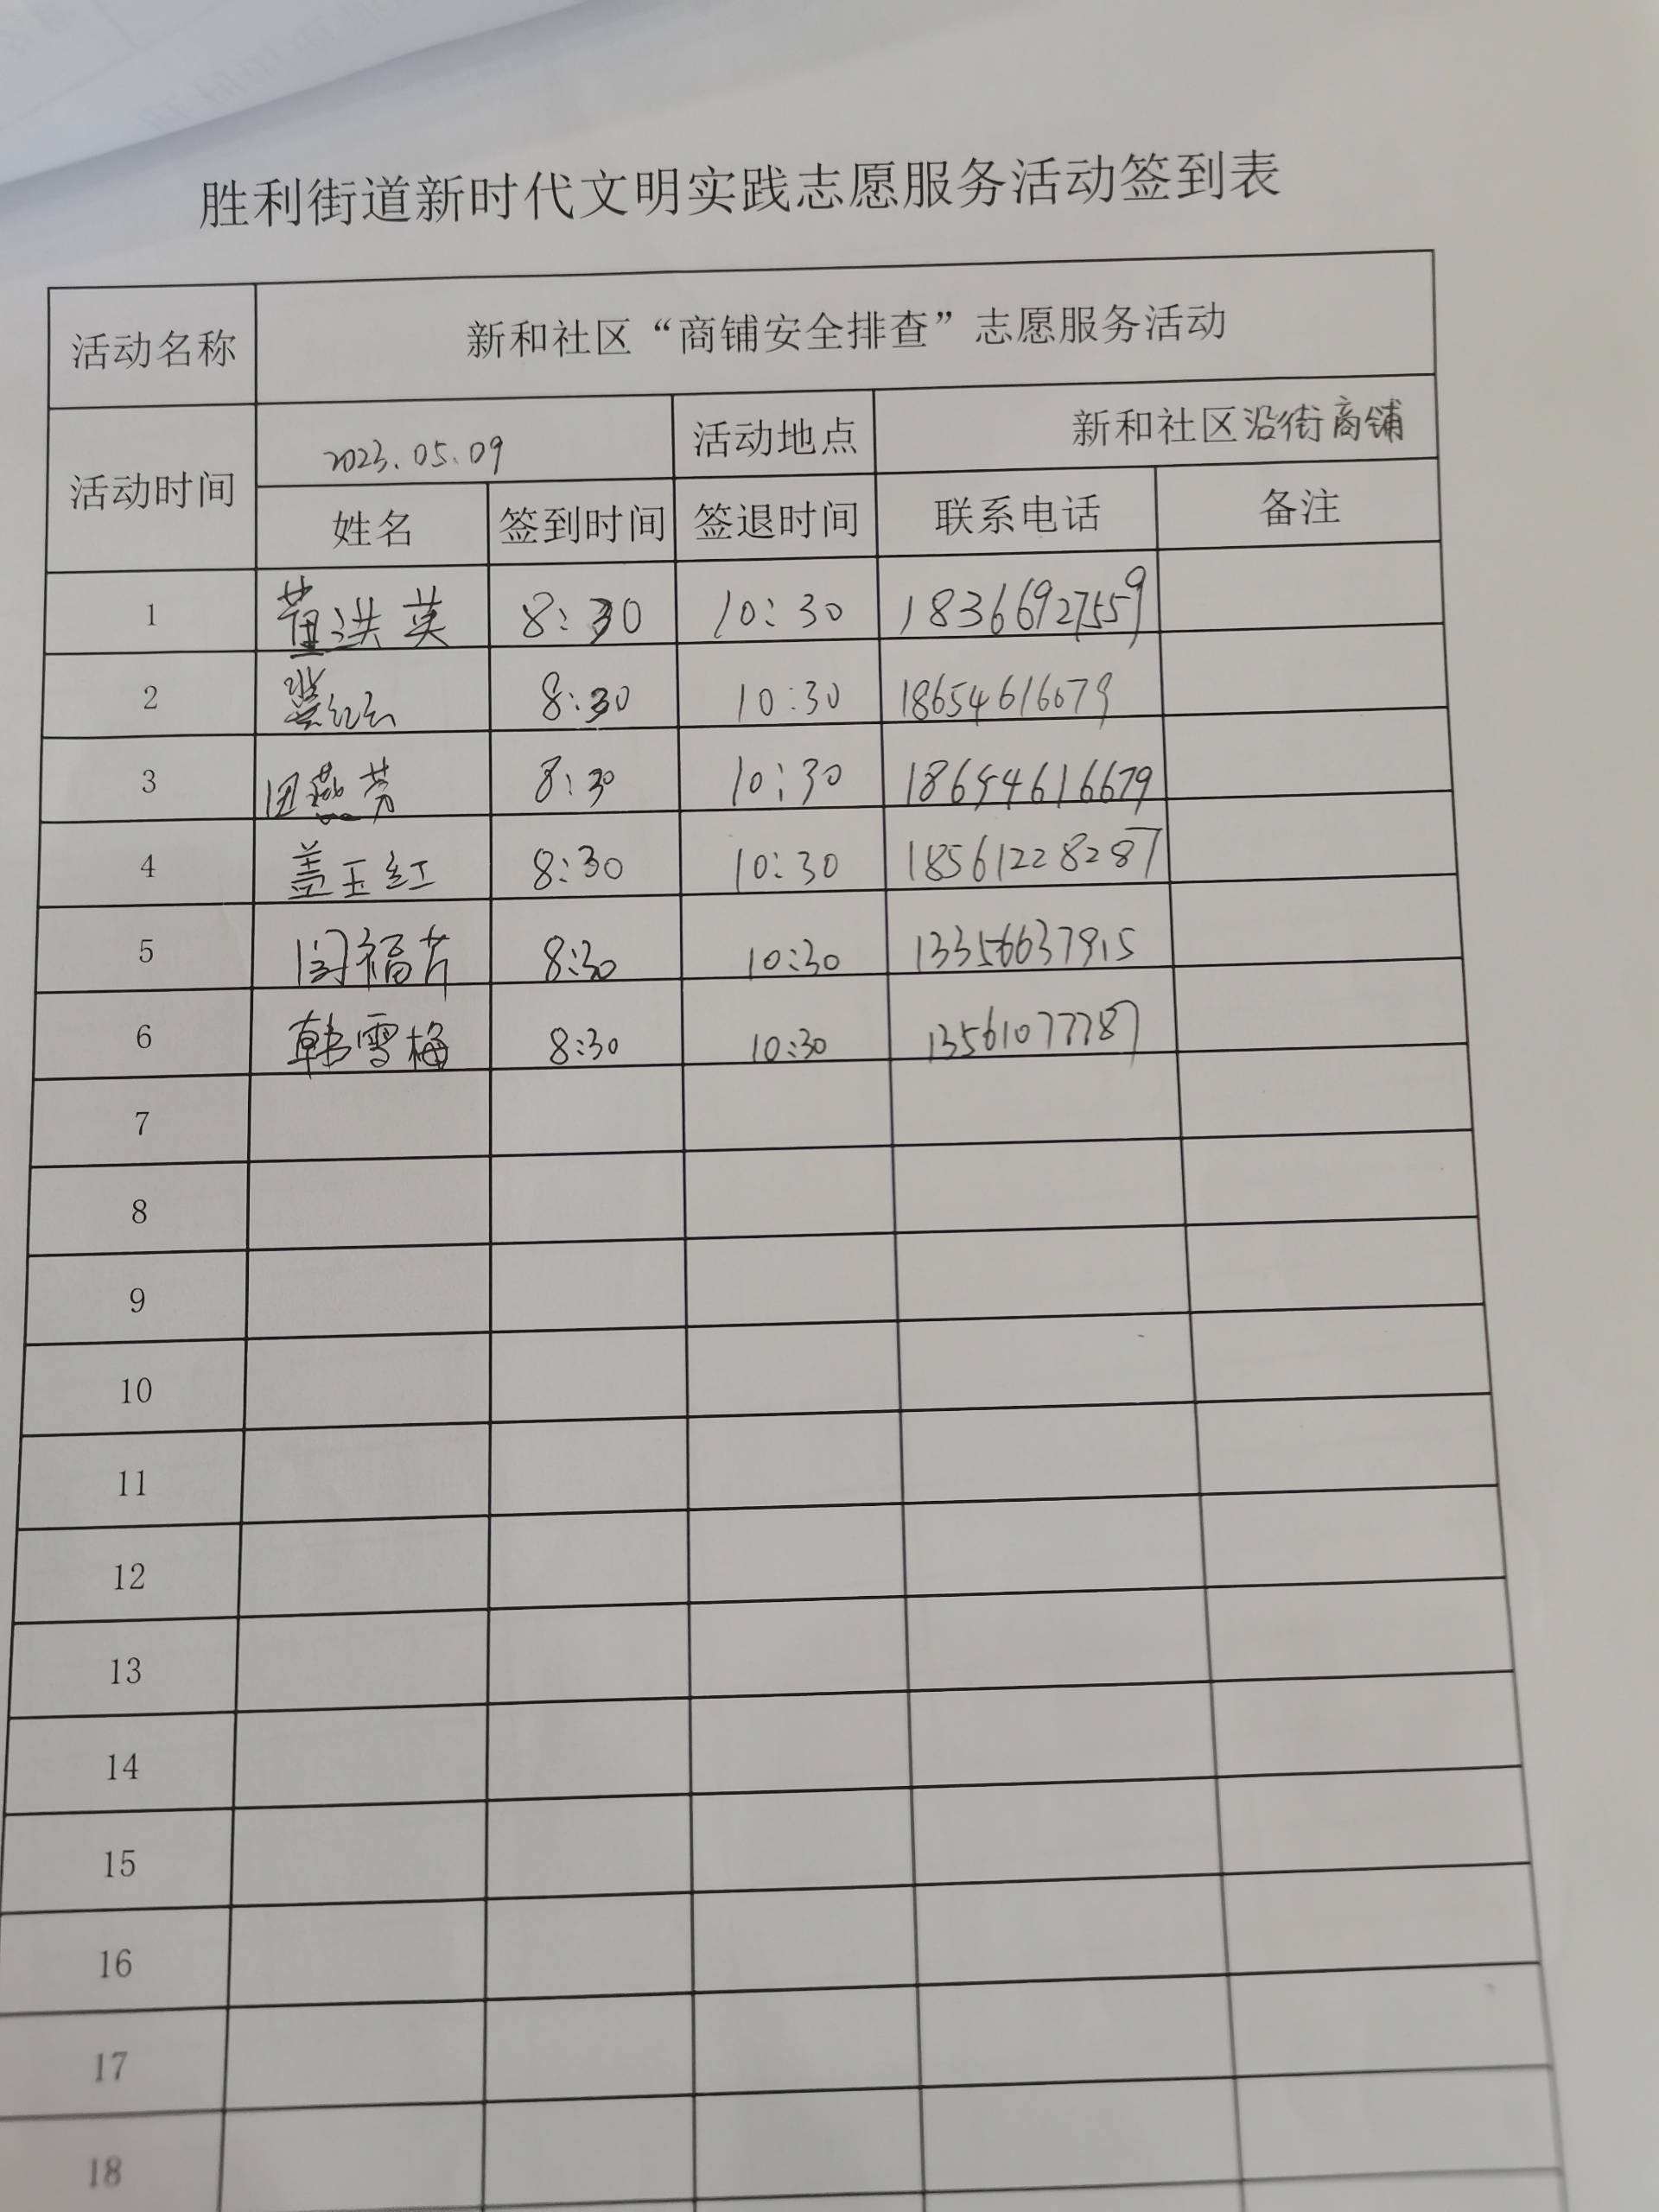 胜利街道新时代文明实践志愿服务活动签到表
活动名称 新和社区“商铺安全排查”志愿服务活动
活动时间 2023.05.09 活动地点 新和社区沿街商铺
姓名 签到时间 签退时间 联系电话 备注
1 董洪英 8:30 10:30 18366927559
2 8:30 10:30 18654616679
3 田燕芳 8:30 10:30 18654616679
4 盖玉红 8:30 10:30 18561228287
5 闫福芳 8:30 10:30 13356637915
6 韩雪梅 8:30 10:30 13561077787
7
8
9
10
11
12
13
14
15
16
17
18